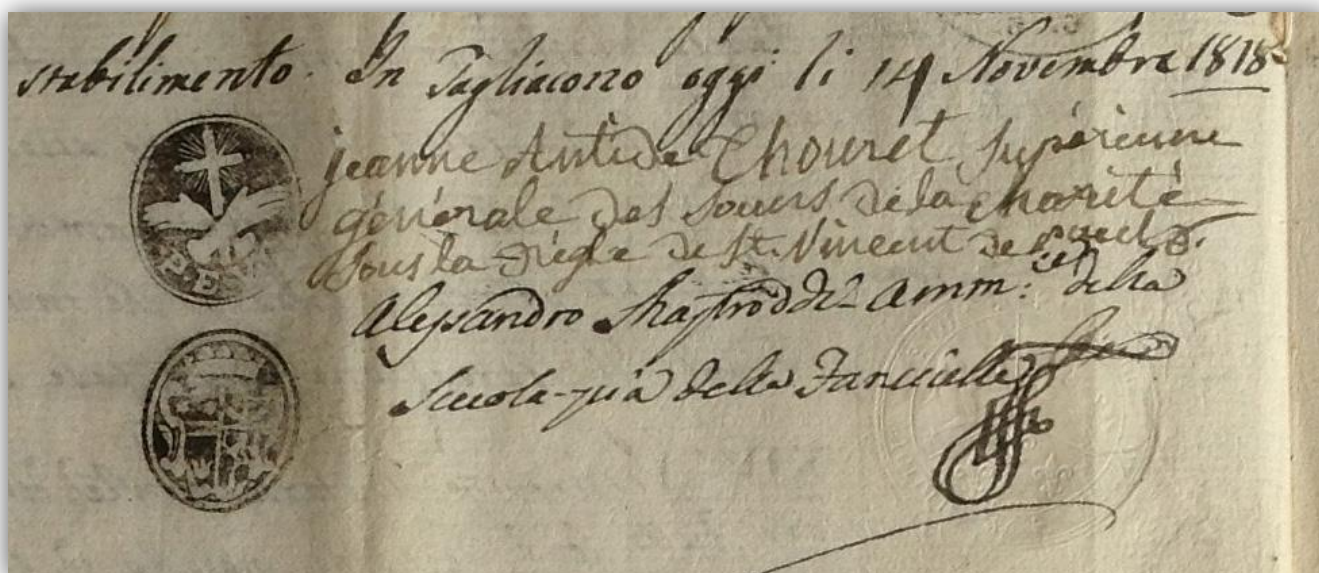 stabilimento. In Tagliacozzo oggi li 14 Novembre 1818
jeanne Antide Thouret Supérieure
générale des Soeurs de la Charité
sous la Règle de St. Vincent de
Alessandro Amm: della
Scuola-pia delle Fanciulle